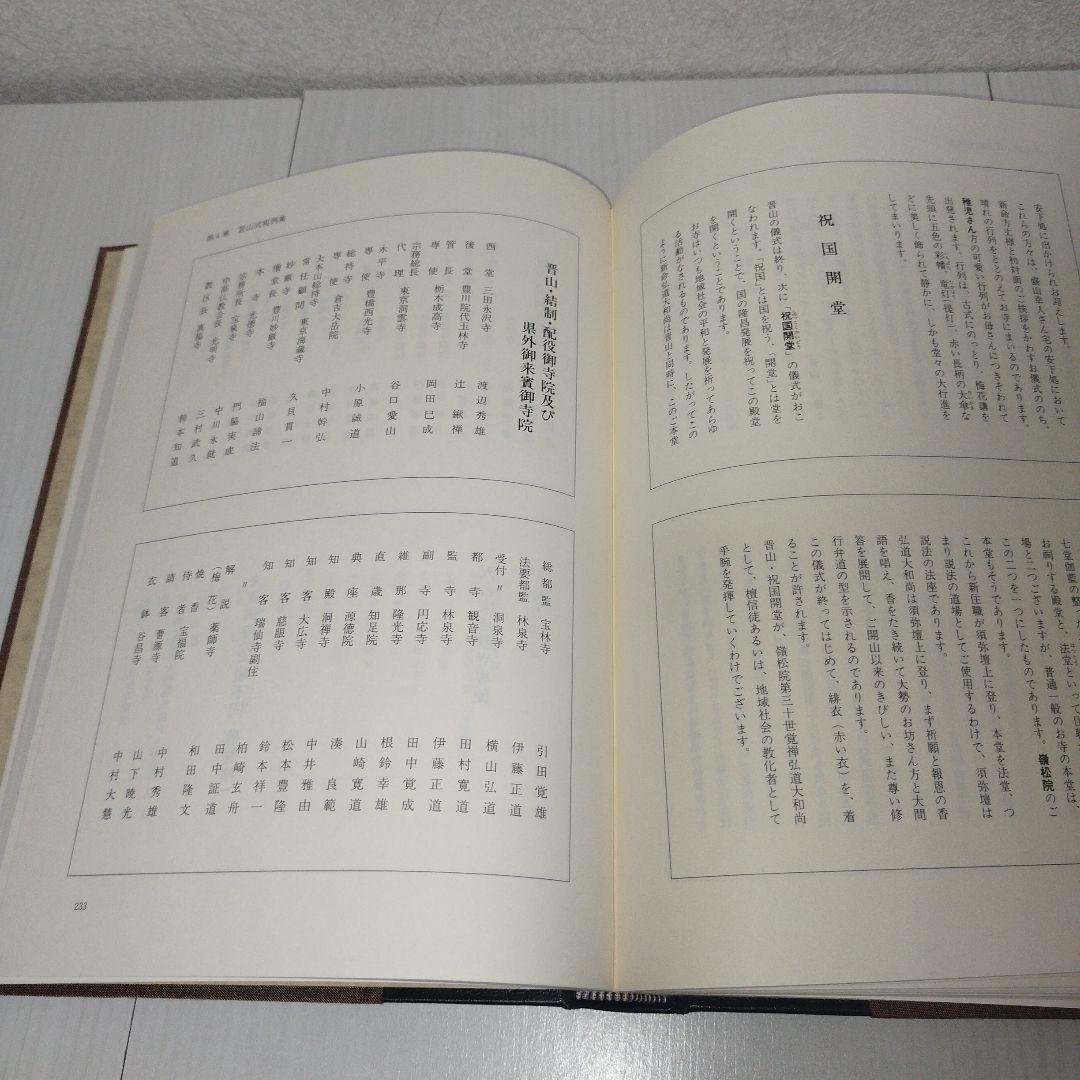 安下処に出かけられお迎えします。
これらの方々は、森山幸人さん宅の安下処において
新命方丈様と初対面のご挨拶をかわすお儀式ののち、
晴れの行列をととのえてお寺にまいるのであります。
稚児さん方の可愛い行列がお母さんにつきそわれて
出発されます。行列は、古式にのっとり、梅花講を
先頭に五色の彩幡、竜灯（提灯）、赤い長柄の大傘な
どに美しく飾られて静かに、しかも堂々の大行進を
してまいります。
祝国開堂
晋山の儀式は終り、次に「祝国開堂」の儀式がおこ
なわれます。「祝国」とは国を祝う、「開堂」とは堂を
開くということで、国の隆昌発展を祝ってこの殿堂
を開くということであります。
お寺はいつも地域社会の平和と発展を祈ってあらゆ
る活動がなされるものであります。したがってこの
ように新倉弘道大和尚は晋山と同時に、このご本堂
七堂伽藍の
お祠りする殿堂と、法堂といって
場と二つございますが、普通一般のお寺の本堂は、
この二つを一つにしたものであります。嶺松院のご
本堂もそうであります。
これから新住職が須弥壇上に登り、本堂を法堂、つ
まり説法の道場としてご使用するわけで、須弥壇は
説法の法座であります。
弘道大和尚は須弥壇上に登り、まず祈願と報恩の香
語を唱え、香をたき続いて大勢のお坊さん方と大問
答を展開して、ご開山以来のきびしい、また尊い修
行弁道の型を示されるのであります。
この儀式が終ってはじめて、緋衣（赤い衣）を、着
ることが許されます。
晋山・祝国開堂が、嶺松院第三十世覚禅弘道大和尚
として、檀信徒あるいは、地域社会の教化者として
手腕を発揮していくわけでございます。
第4章 晋山式実例集
晋山・結制・配役御寺院及び
県外御来賓御寺院
西堂 三田永沢寺 渡辺秀雄
後堂 豊川院代玉林寺 辻鍬禅
管長専使 栃木成高寺 岡田巳成
宗務総長代理 東京洞雲寺 谷口愛山
永平寺専使 豊橋西光寺 小原誠道
総持寺専使 倉吉大岳院 中村幹弘
大本山総持寺常任顧問 東京海蔵寺 久貝貫一
妙厳寺僧堂長 豊川妙厳寺 福山諦法
本寺 光徳寺 門脇実成
宗務所長 宝泉寺 中川永就
仏教会長 光明寺 三村武久
教区長 真福寺 鈴本知道
総都監 宝林寺 引田覚雄
法要都監 林泉寺 伊藤正道
受付〃 洞泉寺 横山弘道
都寺 観音寺 田村寛道
監寺 林泉寺 伊藤正道
副寺 円応寺 田中覚成
維那 隆光寺 根鈴幸雄
直歳 知足院 山崎寛道
典座 源徳院 湊良範
知殿 洞禅寺 中井雅由
知客 大広寺 松本豊隆
知客 慈眼寺 鈴本祥一
知客 瑞仙寺副住 柏崎玄舟
解説（梅花） 薬師寺 田中証道
焼香侍者 宝福院 和田隆文
請客 曹源寺 中村秀雄
衣鉢 谷昌寺 山下暁光
中村大慧
233